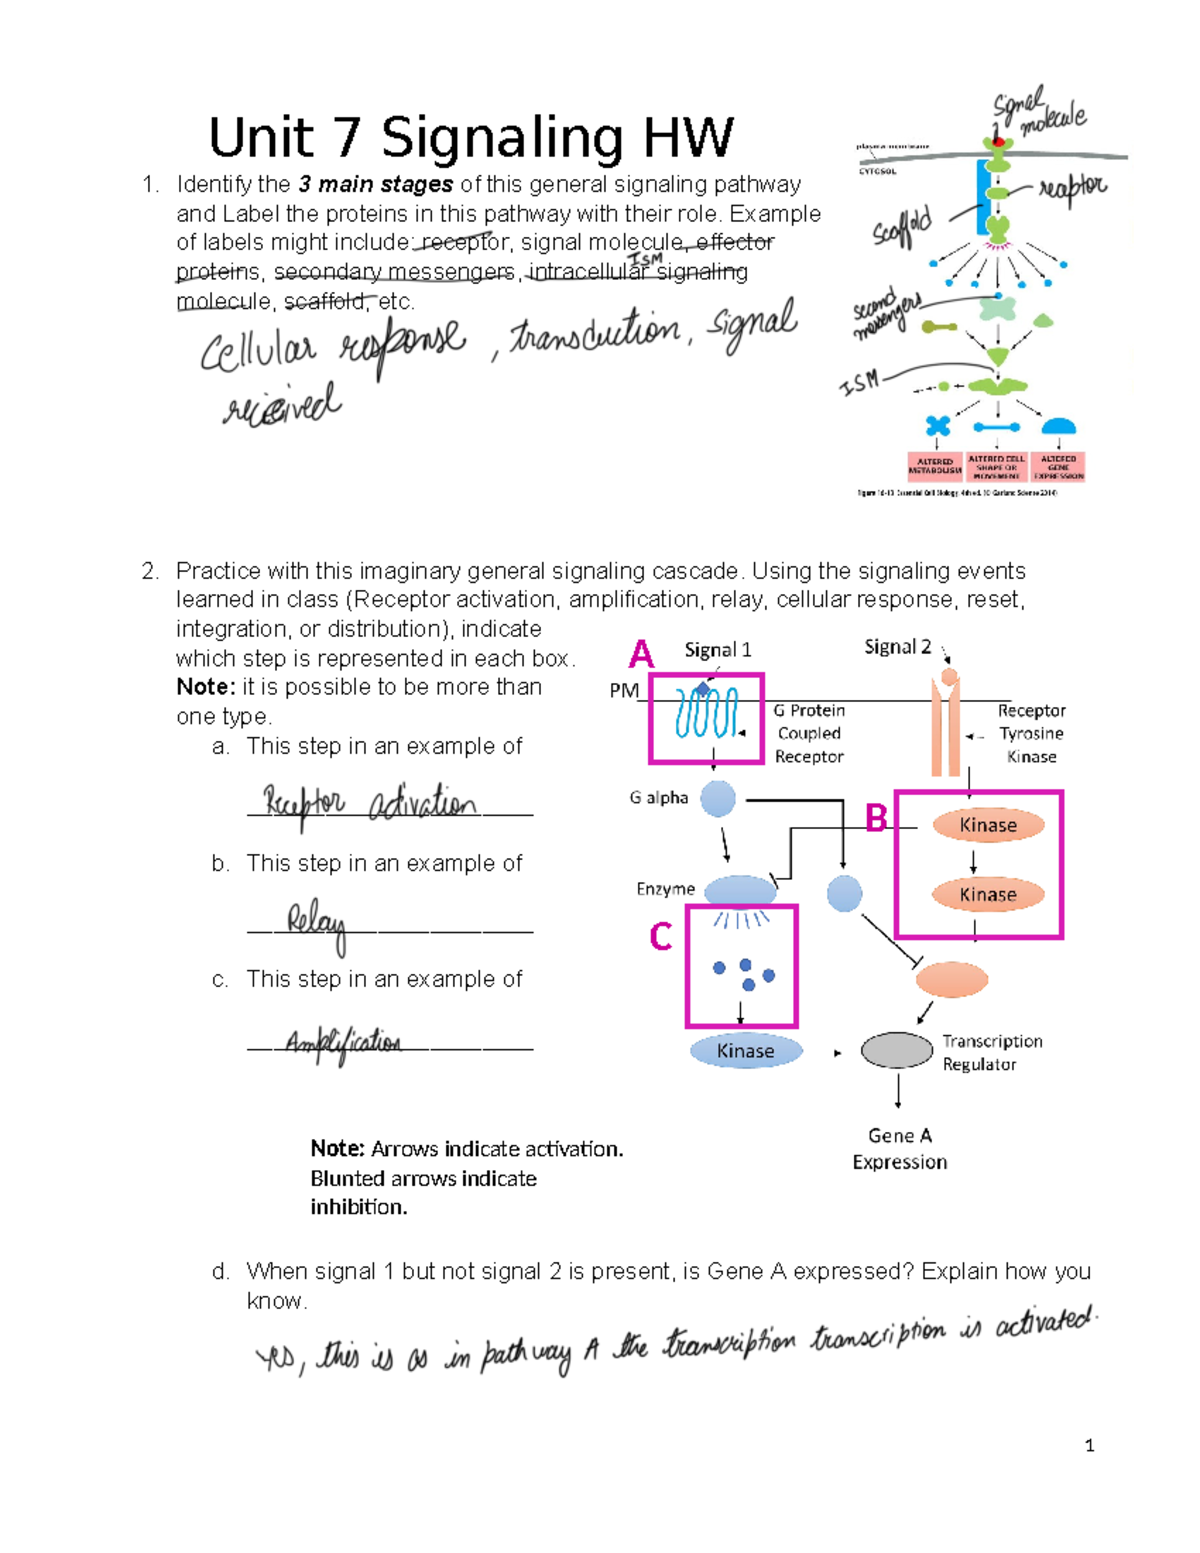 Signal
molecule
Unit 7 Signaling HW
plasma membrane
CYTOSOL
1. Identify the 3 main stages of this general signaling pathway
and Label the proteins in this pathway with their role. Example
of labels might include: receptor, signal molecule, effector
ISM
proteins, secondary messengers, intracellular signaling
molecule, scaffold, etc.
reaptor
scaffold
second
messengers
ISM
Cellular response, transduction, signal
recieved
ALTERED METABOLISM
ALTERED CELL SHAPE OR MOVEMENT
ALTERED GENE EXPRESSION
2. Practice with this imaginary general signaling cascade. Using the signaling events
learned in class (Receptor activation, amplification, relay, cellular response, reset,
integration, or distribution), indicate
which step is represented in each box.
Note: it is possible to be more than
one type.
a. This step in an example of
Receptor activation
b. This step in an example of
Relay
c. This step in an example of
Amplification
A
Signal 1
Signal 2
PM
G Protein
Coupled
Receptor
Receptor
Tyrosine
Kinase
G alpha
B
Kinase
Kinase
Enzyme
C
Kinase
Transcription
Regulator
Gene A
Expression
Note: Arrows indicate activation.
Blunted arrows indicate
inhibition.
d. When signal 1 but not signal 2 is present, is Gene A expressed? Explain how you
know.
yes, this is as in pathway A the transcription transcription is activated.
1